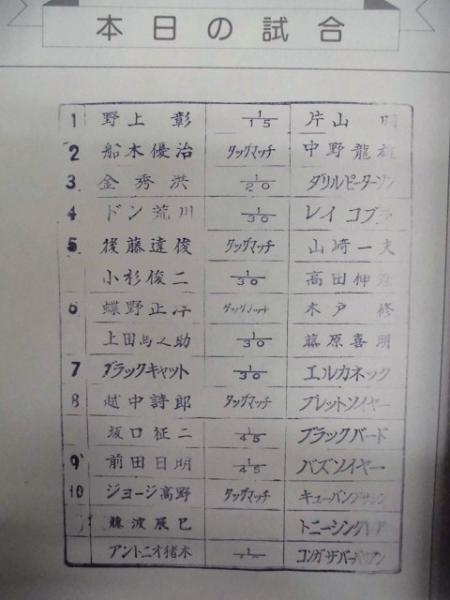 本日の試合
1 野上 彰 1/15 片山
2 船木優治 タッグマッチ 中野龍雄
3 金秀洪 1/20 ダリルピーターソン
4 ドン荒川 1/30 レイ コブラ
5 後藤達俊 タッグマッチ 山崎一夫
小杉俊二 1/30 高田伸彦
6 蝶野正洋 タッグマッチ 木戸 修
上田馬之助 1/30 藤原喜明
7 ブラックキャット 1/30 エルカネック
8 越中詩郎 タッグマッチ ブレットソイヤー
坂口征二 1/45 ブラックバード
9 前田日明 1/45 バズソイヤー
10 ジョージ高野 タッグマッチ キューバン
藤波辰巳 トニー
アントニオ猪木 コンガ・ザ・バーバリアン